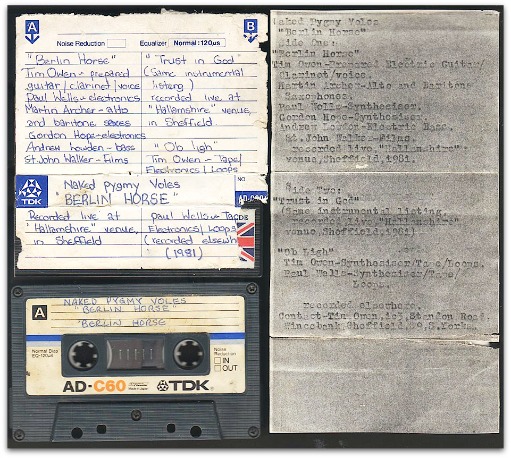 A
B
Noise Reduction
Equalizer
Normal:120µs
"Berlin Horse"
Tim Owen - prepared
guitar/clarinet/voice
Paul Wells - electronics
Martin Archer - alto
and baritone saxes
Gordon Hope - electronics
Andrew Lowden - bass
St. John Walker - Films
"Trust in God"
(Same instrumental
listing)
recorded live at
"Hallamshire" venue,
in Sheffield
"Ob ligh"
Tim Owen - Tape/
Electronics/Loops
TDK
Naked Pygmy Voles
"BERLIN HORSE"
NO
Recorded live at
"Hallamshire" venue,
in Sheffield
Paul Wells - Tape
Electronics/Loops
(recorded elsewh
(1981)
A
NAKED PYGMY VOLES
"BERLIN HORSE"
"BERLIN HORSE
Normal Bias
EQ-120µs
Noise
Reduction
IN
OUT
AD-C60
TDK
Naked Pygmy Voles
"Berlin Horse"
Side One:
"Berlin Horse"
Tim Owen-Prepared Electric Guitar/
Clarinet/voice.
Martin Archer-Alto and Baritone
Saxophones.
Paul Wells-Synthesiser.
Gordon Hope-Synthesiser.
Andrew Lowden-Electric Bass.
St. John Walker-Films.
recorded live, "Hallamshire"
venue, Sheffield, 1981.
Side Two:
"Trust in God"
(Same instrumental listing.
recorded live, "Hallamshire"
venue, Sheffield, 1981)
"Ob Ligh"
Tim Owen-Synthesiser/Tape/Loops.
Paul Wells-Synthesiser/Tape/
Loops.
recorded elsewhere.
Contact-Tim Owen, Standon Road,
Wincobank, Sheffield, S. Yorks.